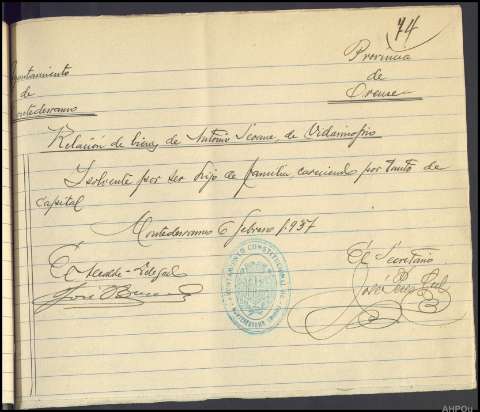 74
Ayuntamiento
de
Montederramo
Provincia
de
Orense
Relación de bienes de Antonio Seoane, de
Isolvente por ser hijo de familia careciendo por tanto de
capital
Montederramo 6 febrero 1937
El Alcalde-
José
El Secretario
José Pérez
AYUNTAMIENTO CONSTITUCIONAL DE
MONTEDERRAMO
AHPOu